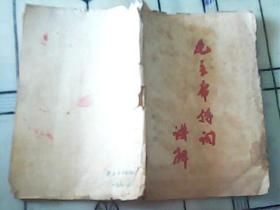 毛主席诗词
讲解